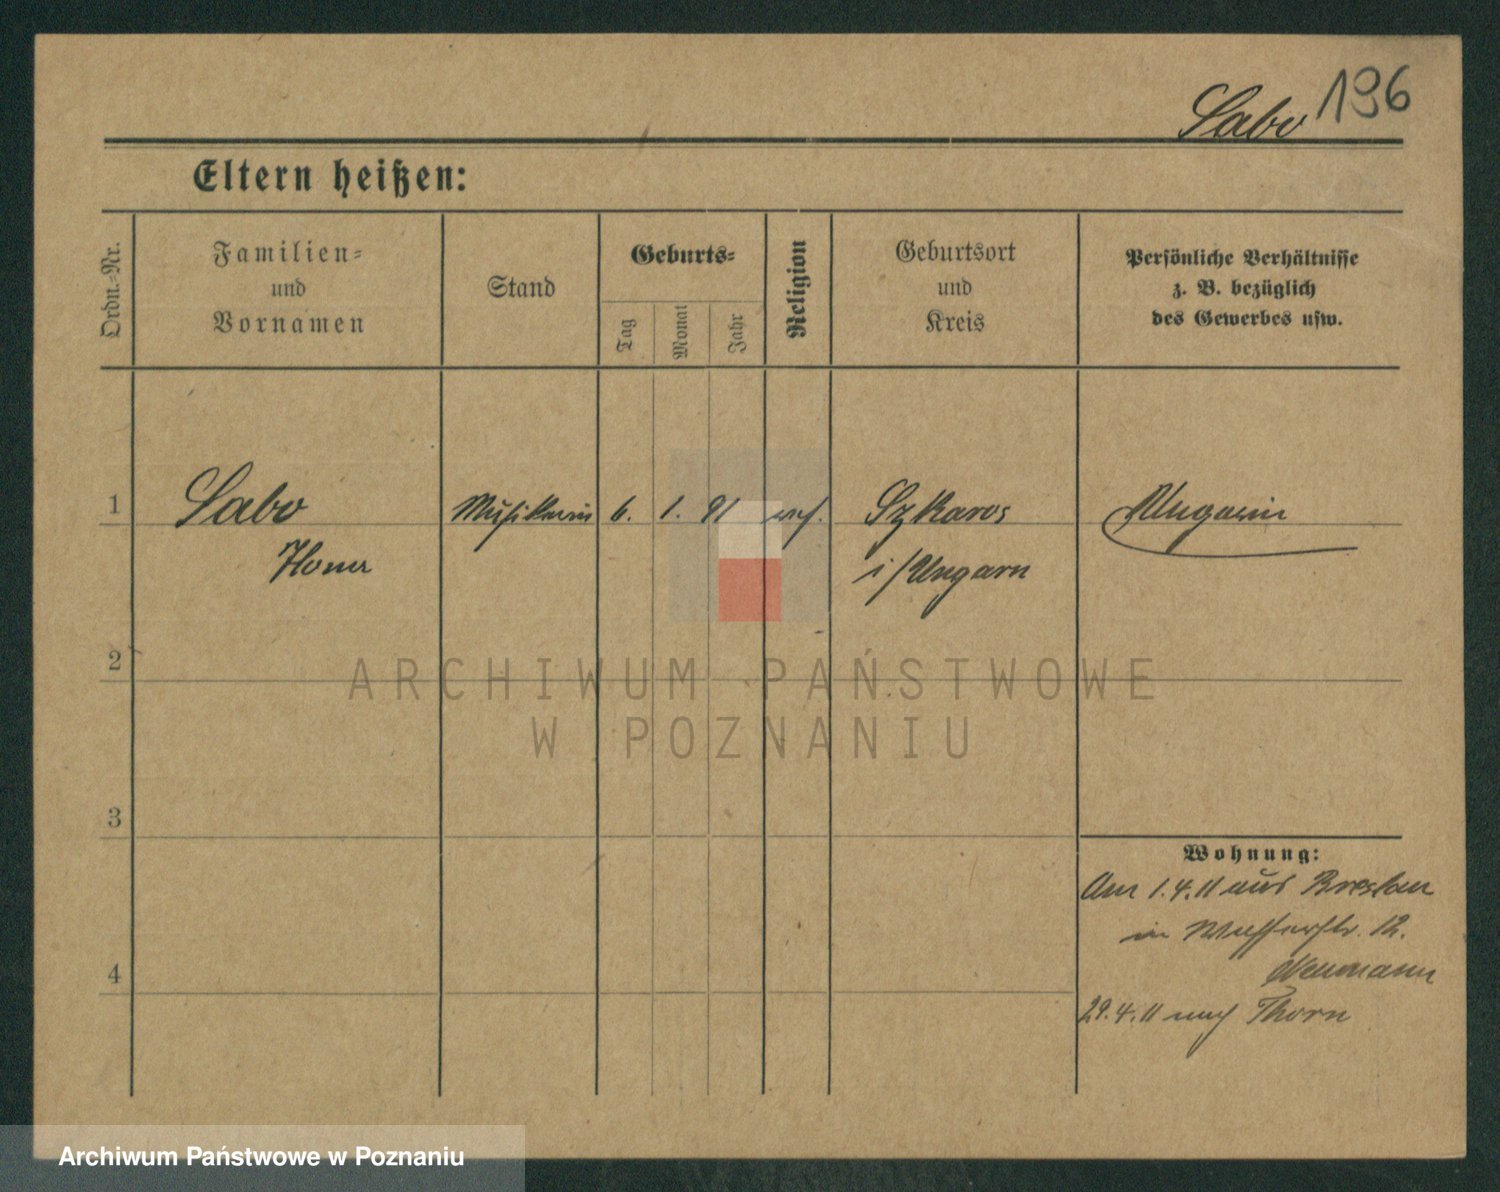 Sabo 196
Eltern heißen:
Ordn.-Nr.
Familien-
und
Vornamen
Stand
Geburts-
Tag
Monat
Jahr
Religion
Geburtsort
und
Kreis
Persönliche Verhältnisse
z. B. bezüglich
des Gewerbes usw.
1 Sabo Musikerin 6. 1. 91 Szkaros Ungarin
Ilona i/Ungarn
2
ARCHIWUM PAŃSTWOWE
W POZNANIU
3
Wohnung:
Am 1.4.11 aus Breslau
in Wasserstr. 12.
4
Neumann
29.4.11 nach Thorn
Archiwum Państwowe w Poznaniu